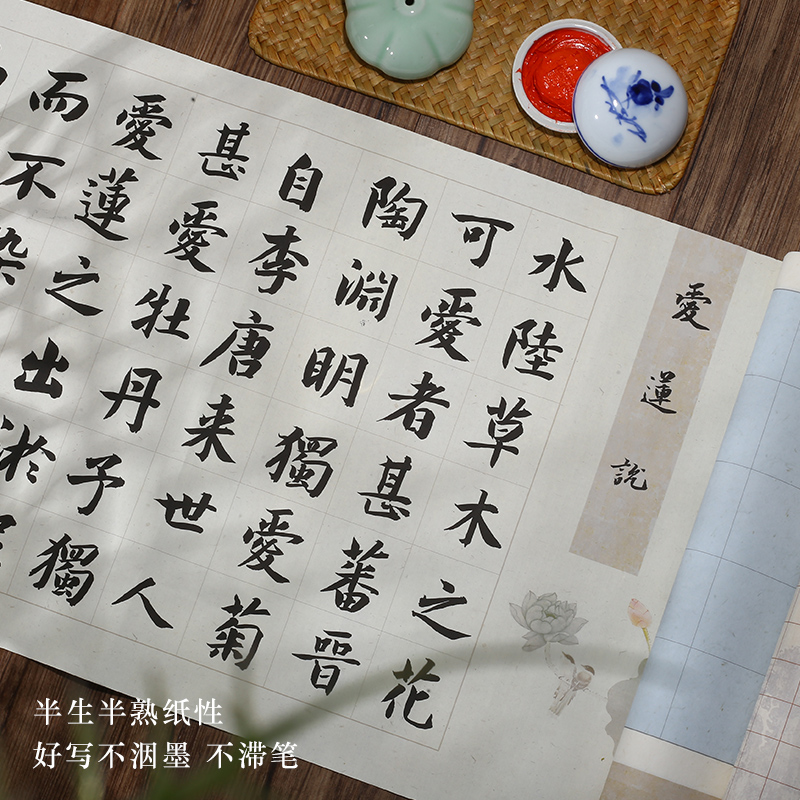 愛蓮說
水陸草木之花
可愛者甚蕃晉
陶淵明獨愛菊
自李唐来世人
甚愛牡丹予獨
愛蓮之出淤
而不染
半生半熟纸性
好写不洇墨 不滞笔